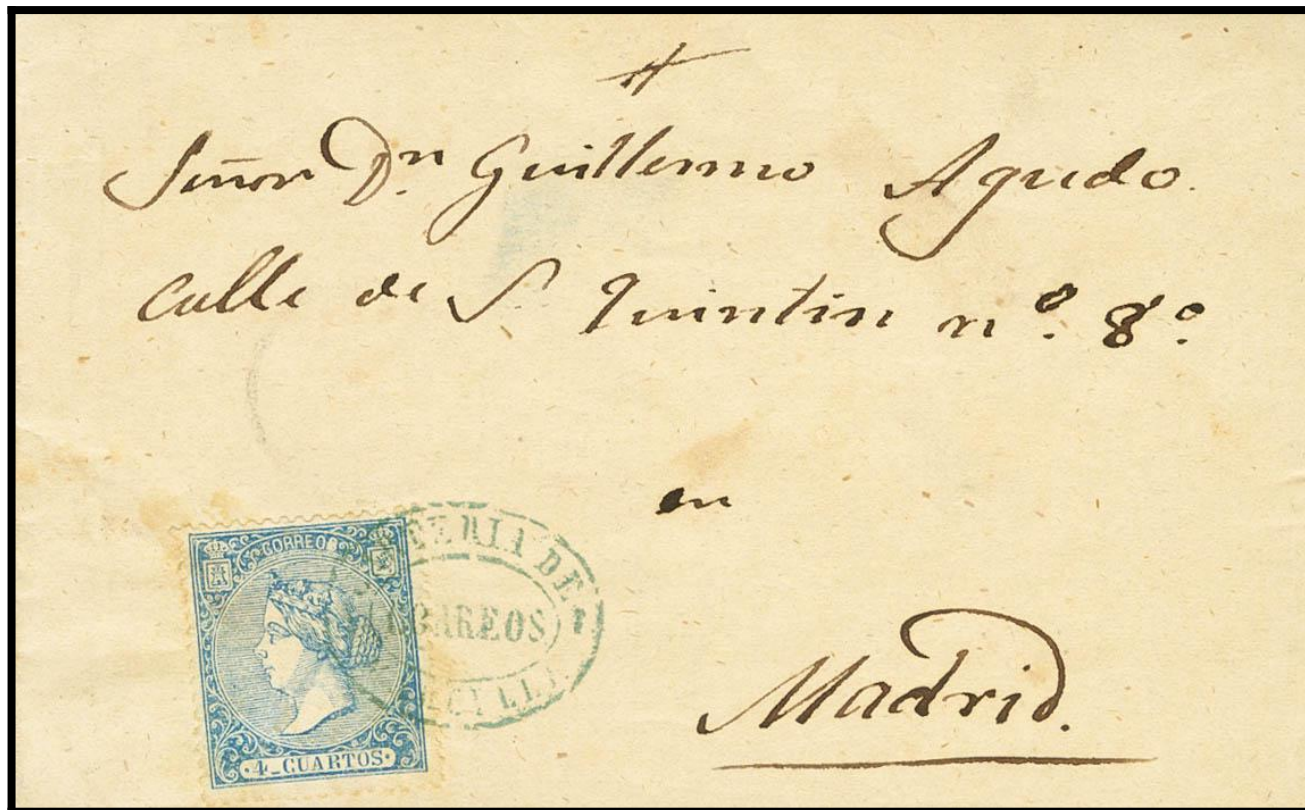 Señor Dn. Guillermo Agudo.
Calle de S. Quintin nº. 8º.
en
Madrid.
CORREOS
4_CUARTOS
DE